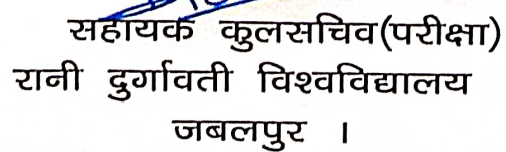 सहायक कुलसचिव(परीक्षा)
रानी दुर्गावती विश्वविद्यालय
जबलपुर ।